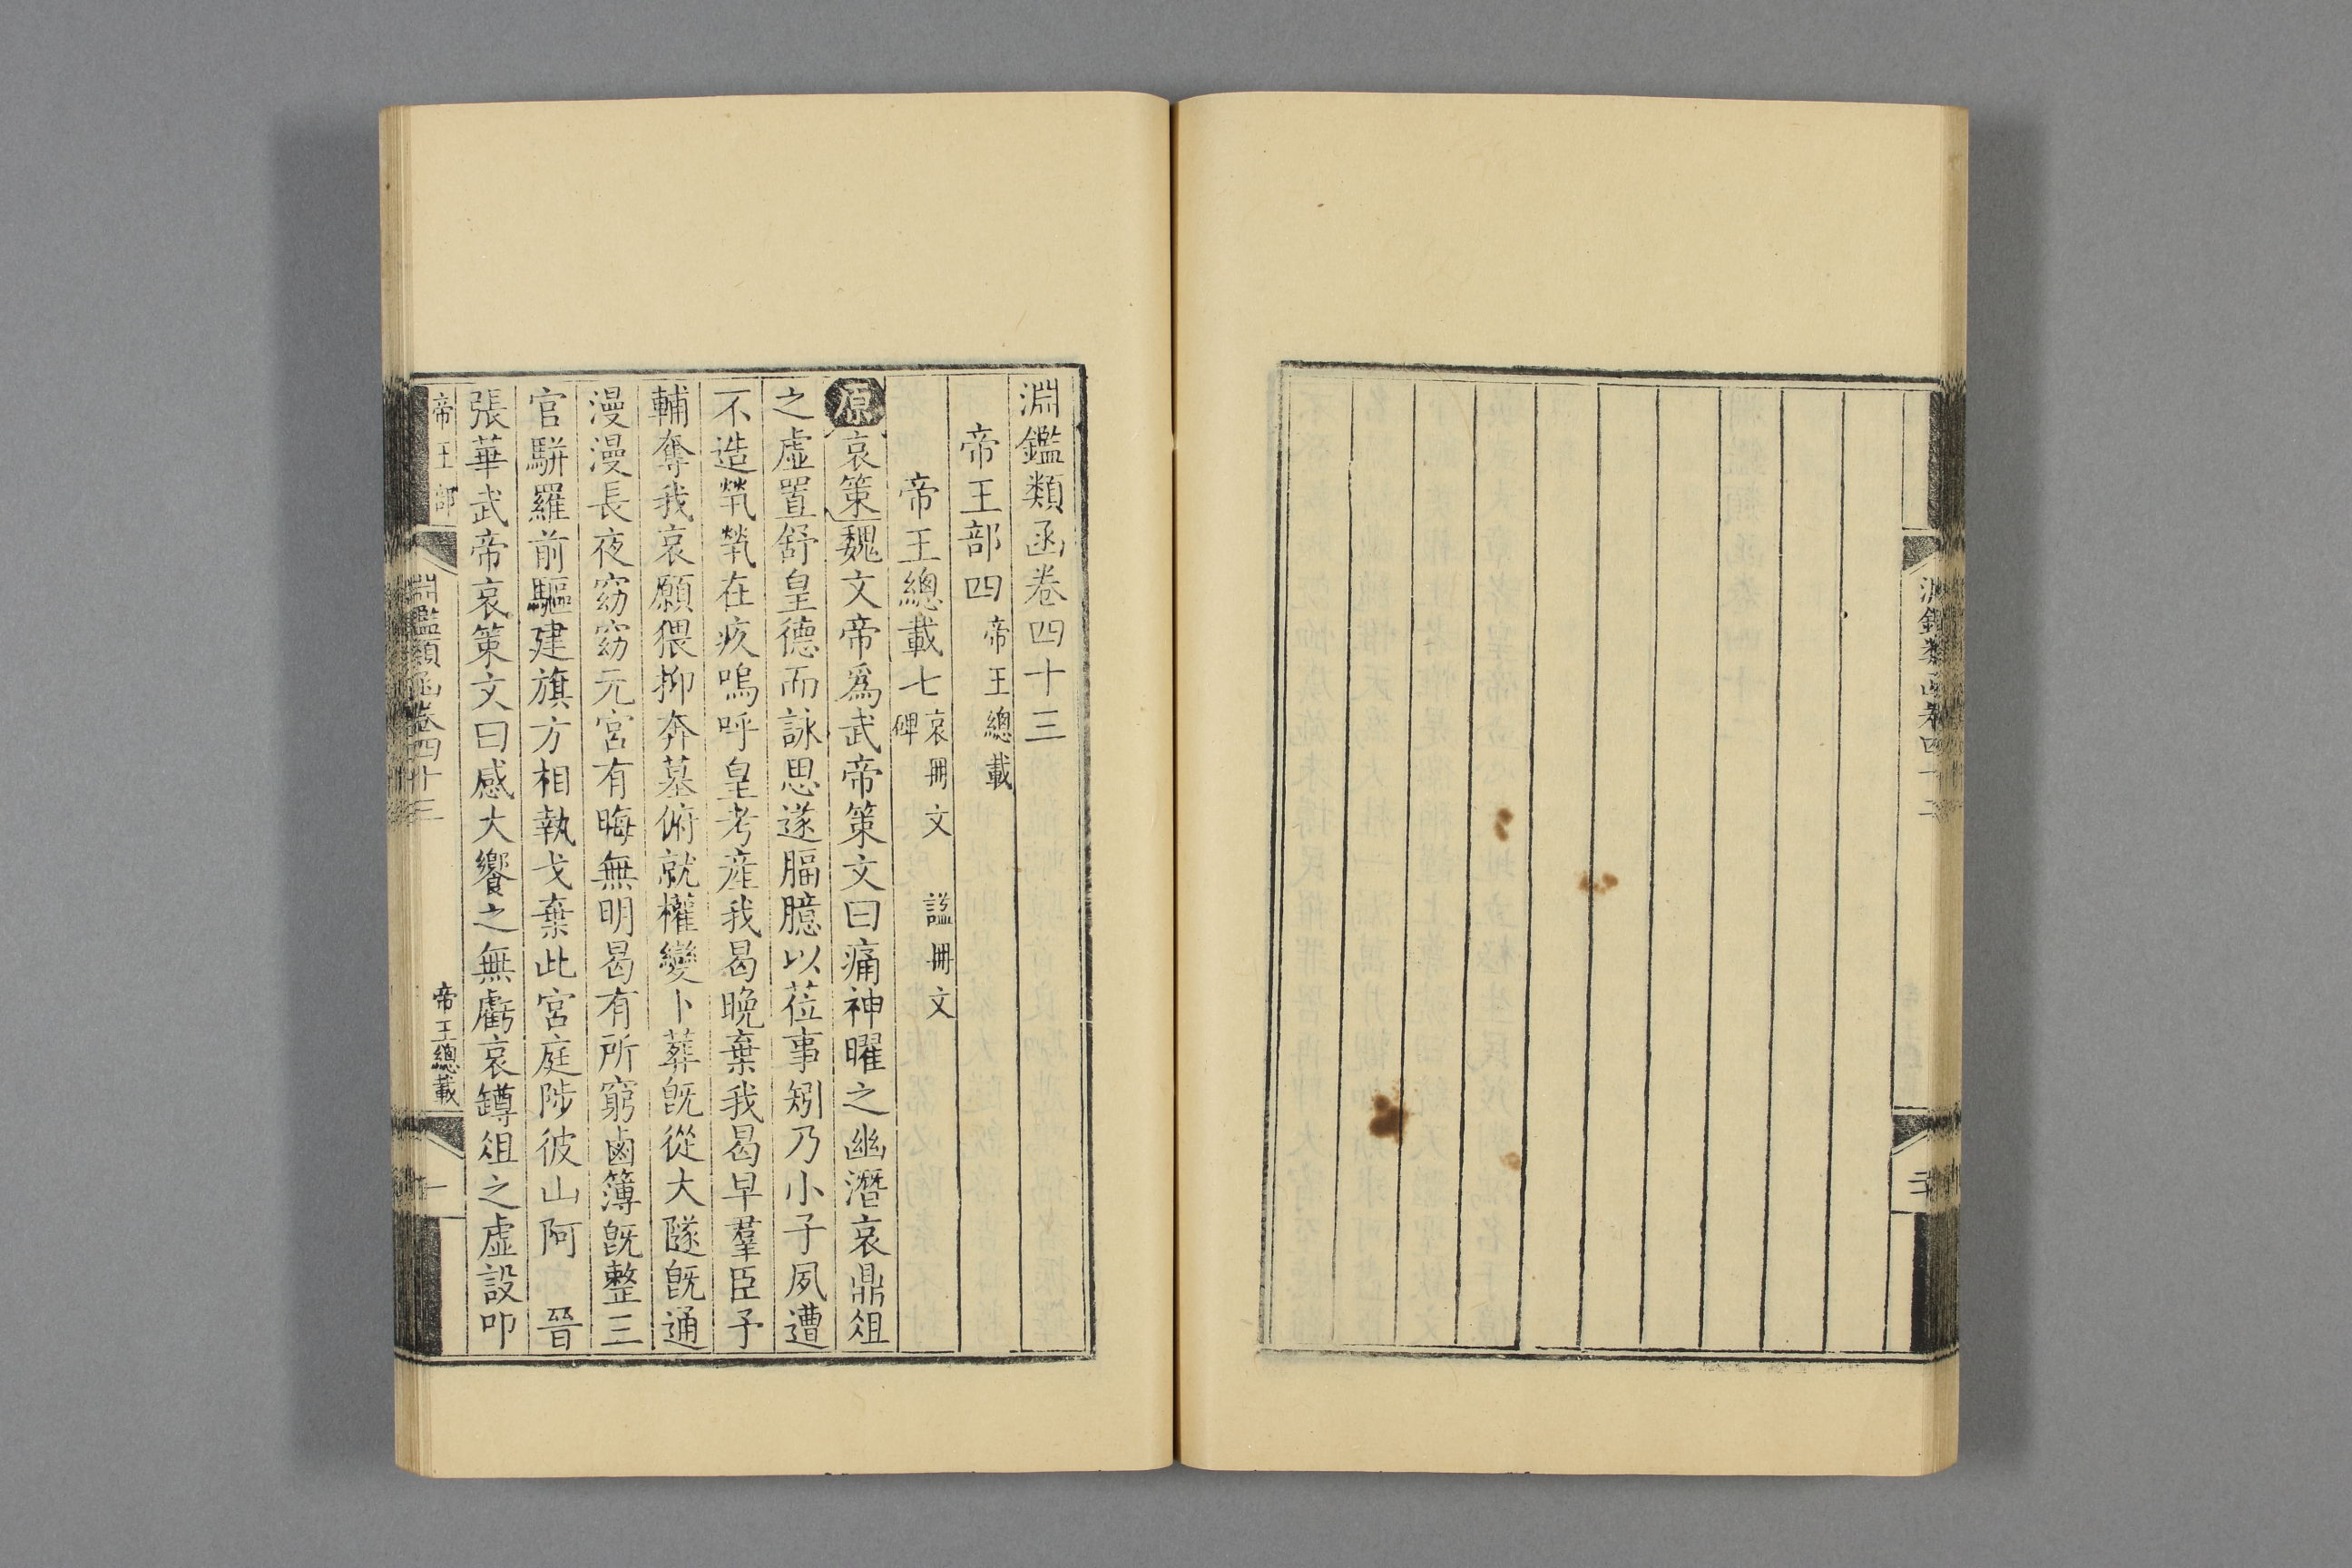 淵鑑類函卷四十三
帝王部四 帝王總載
帝王總載七 哀冊文 諡冊文 碑
原哀策魏文帝爲武帝策文曰痛神曜之幽潛哀鼎俎
之虛置舒皇德而詠思遂腷臆以莅事矧乃小子夙遭
不造煢煢在疚嗚呼皇考產我曷晚棄我曷早羣臣子
輔奪我哀願猥抑奔墓俯就權變卜葬旣從大隧旣通
漫漫長夜窈窈元宮有晦無明曷有所窮鹵簿旣整三
官駢羅前驅建旗方相執戈棄此宮庭陟彼山阿 晉
張華武帝哀策文曰感大饗之無虧哀罇俎之虛設叩
帝王部
淵鑑類函卷四十三
帝王總載
一